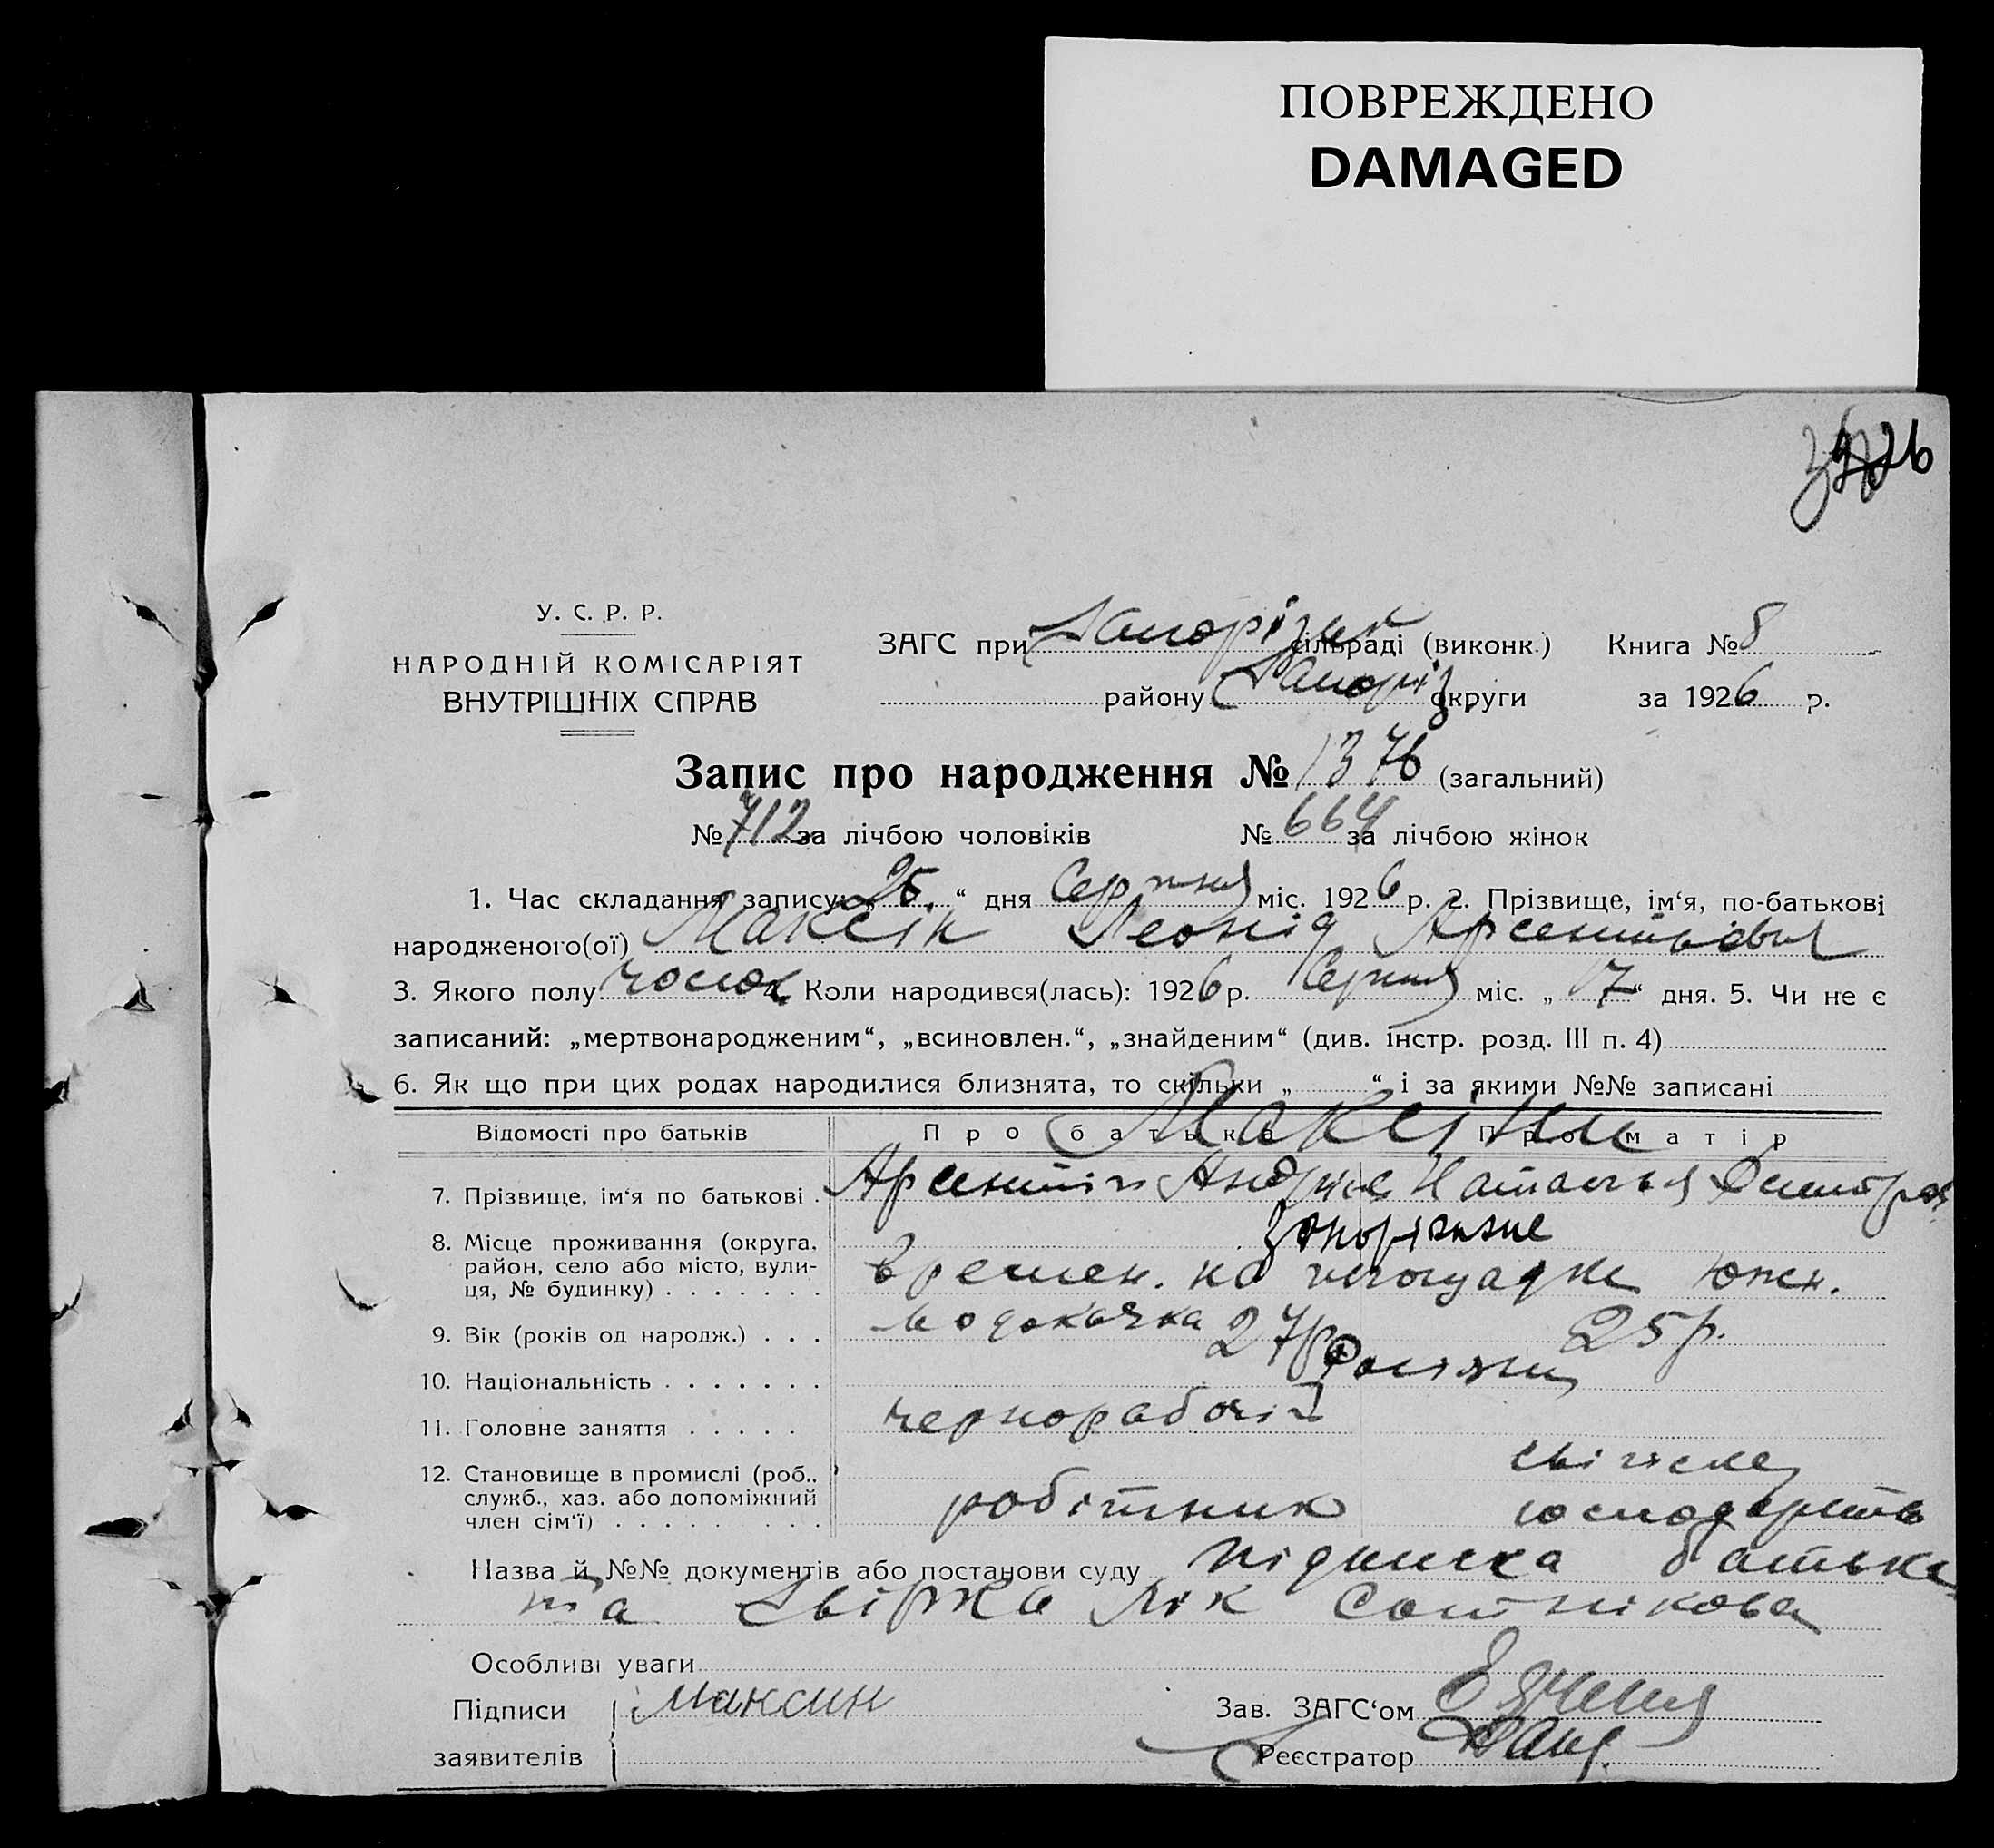 ПОВРЕЖДЕНО
DAMAGED
У. С. Р. Р.
НАРОДНІЙ КОМІСАРІЯТ
ВНУТРІШНІХ СПРАВ
ЗАГС при Запорізьк сільраді (виконк.) Книга № 8
району Запоріз. округи за 1926 р.
Запис про народження № 1376 (загальний)
№ 712 за лічбою чоловіків № 664 за лічбою жінок
1. Час складання запису: „25“ дня Серпня міс. 1926 р. 2. Прізвище, ім‘я, по-батькові
народженого(ої) Максін Леонід Арсентьович
3. Якого полу чолов. Коли народився(лась): 1926 р. Серпня міс. „17“ дня. 5. Чи не є
записаний: „мертвонародженим“, „всиновлен.“, „знайденим“ (див. інстр. розд. III п. 4)
6. Як що при цих родах народилися близнята, то скільки „ “ і за якими №№ записані
Відомості про батьків Про батька Про матір
Максіни
7. Прізвище, ім‘я по батькові . Арсентій Андріев Наталья Дмитров
8. Місце проживання (округа, район, село або місто, вулиця, № будинку) . . . . . . .
Запоріжже
времен. на площадке южн.
водокачка
9. Вік (років од народж.) . . . 27р. 25р.
10. Національність . . . . . . . Росіяни
11. Головне заняття . . . . . чернорабочій
12. Становище в промислі (роб., служб., хаз. або допоміжний член сім‘ї) . . . . . . . .
робітник
господарств
Назва й №№ документів або постанови суду підписка батька
та звірка лік Сотнікова
Особливі уваги
Підписи Максин Зав. ЗАГС‘ом
заявителів Реєстратор